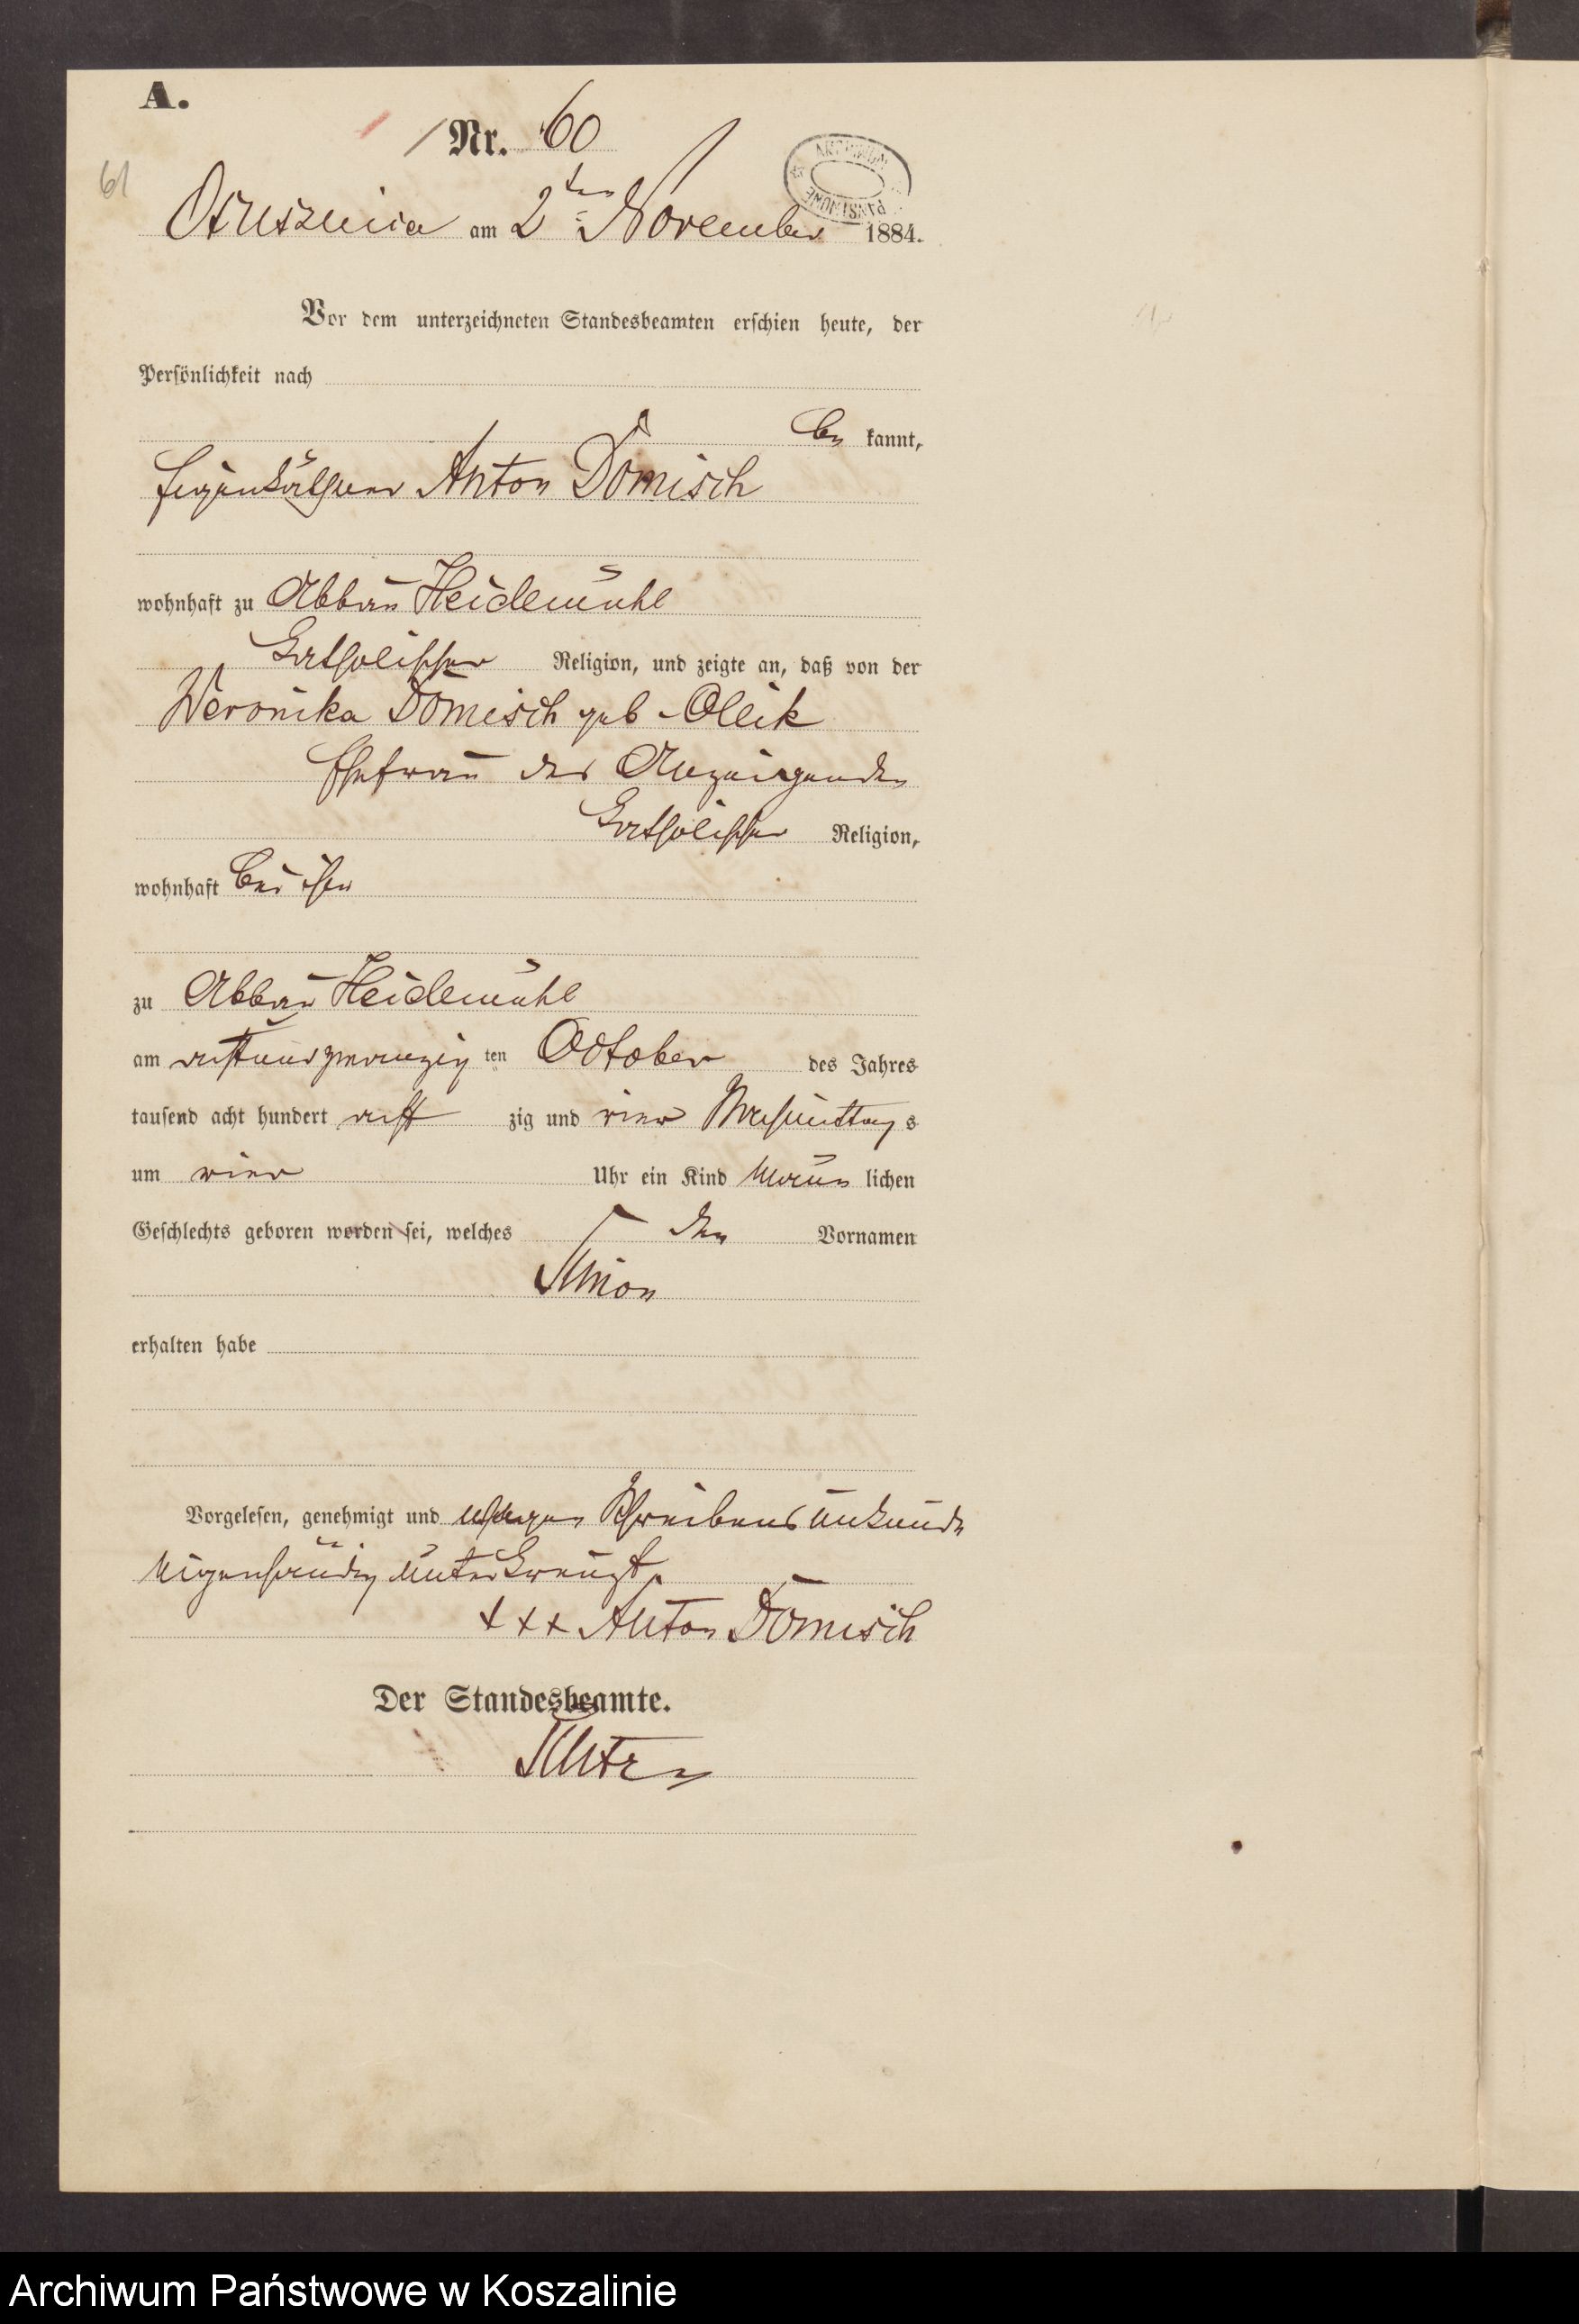 A.
Nr. 60
61
Ostusznica am 2ten November 1884.
ARCHIWUM PAŃSTWOWE
Vor dem unterzeichneten Standesbeamten erschien heute, der
Persönlichkeit nach
be kannt,
Eigenkäthner Anton Domisch
wohnhaft zu Abbau Heidemühl
Katholischer Religion, und zeigte an, daß von der
Weronika Domisch geb. Oleik
Ehefrau des Anzeigenden
Katholischer Religion,
wohnhaft bei ihm
zu Abbau Heidemühl
am achtundzwanzig ten October des Jahres
tausend acht hundert acht zig und vier Nachmittag s
um vier Uhr ein Kind männ lichen
Geschlechts geboren worden sei, welches den Vornamen
Simon
erhalten habe
Vorgelesen, genehmigt und wegen Schreibensunkunde
eigenhändig unterkreuzt.
+++ Anton Domisch
Der Standesbeamte.
Archiwum Państwowe w Koszalinie